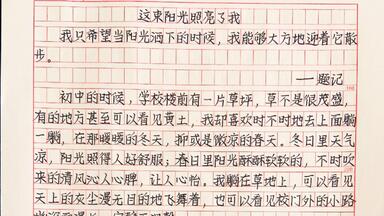 这束阳光照亮了我
我只希望当阳光洒下的时候，我能够大方地迎着它散
步。
——题记
初中的时候，学校楼前有一片草坪，草不是很茂盛，
有的地方甚至可以看见黄土，我却喜欢时不时地去上面躺
一躺，在那暖暖的冬天，抑或是微凉的春天。冬日里天气
凉，阳光照得人好舒服；春日里阳光酥酥软软的，不时吹
来的清风沁人心脾，让人心怡。我躺在草地上，可以看见
天上的衣尘漫无目的地飞舞着，也可以看见校门外的小路